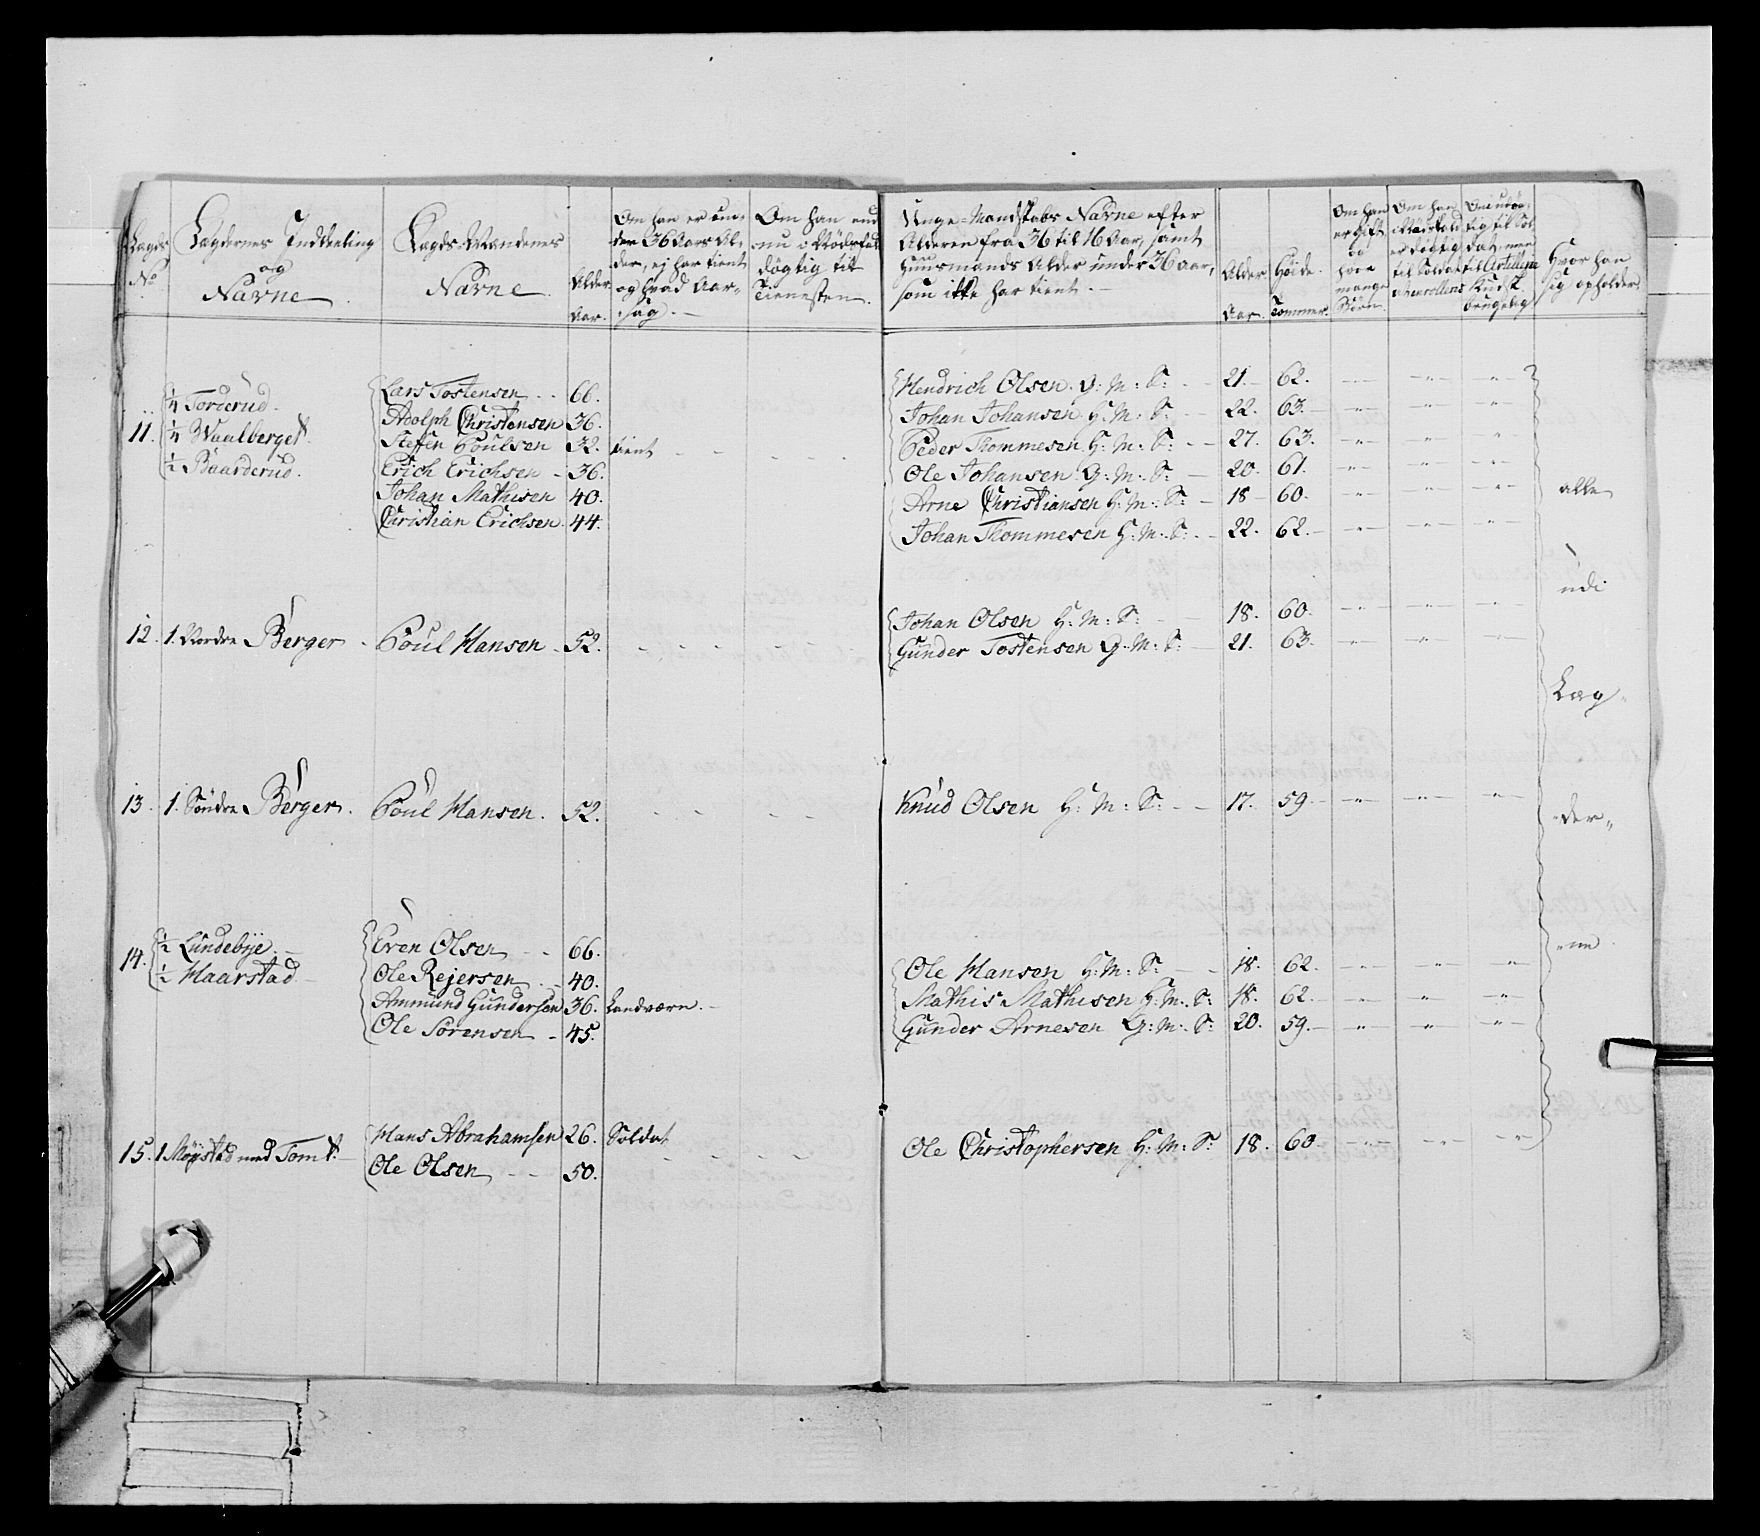 Lagds No
Lagdernes Inddeeling
og
Navne
Lagds-Mændenes
Navne
Alder
Aar.
Om han er un-
der 36 Aars Al-
der, ej har tient
og hvad Aar-
sag.
Om han end
nu i Nødsfald
dögtig til
Tienesten.
Unge-Mandskabs Navne efter
Alderen fra 36 til 16 Aar, samt
Huusmands Alder under 36 Aar,
som ikke har tient.
Alder
Aar.
Høide
Tommer.
Om han
er gift
og
hvor
mange
Börn.
Om han
er dögtig
til Soldat
til Sol
dat, men
til Artillerie
Kudsk
brugelig
Hvor han
sig opholder.
11.
1/4 Torderud.
1/4 Waalberget.
1/2 Baarderud.
Lars Tostensen 66.
Adolph Christensen 36.
Steffen Poulsen 32. tient
Erich Erichsen 36.
Johan Mathisen 40.
Christian Erichsen 44.
Hendrich Olsen G: M: S: 21. 62.
Johan Johansen H: M: S: 22. 63.
Peder Thommesen H: M: S: 27. 63.
Ole Johansen G: M: S: 20. 61.
Arne Christiansen H: M: S: 18 60.
Johan Thommesen H: M: S: 22. 62.
alle
udi
12. 1. Nordre Berger Poul Hansen 52.
Johan Olsen H: M: S: 18. 60.
Gunder Tostensen G: M: S: 21. 63.
Læg-
13. 1. Søndre Berger. Poul Hansen. 52. Knud Olsen H: M: S: 17. 59
-der-
14.
1/2 Lundebye.
1/2 Haarstad
Even Olsen 66.
Ole Rejersen 40.
Ammund Gundersen 36. Landværn.
Ole Sörensen 45.
Ole Hansen H: M: S: 18. 62.
Mathis Mathisen H: M: S: 18. 62.
Gunder Arnesen G: M: S: 20. 59.
-ne
15. 1 Möystad med Tomt.
Hans Abrahamsen 26. Soldat
Ole Olsen 50.
Ole Christophersen H: M: S: 18. 60